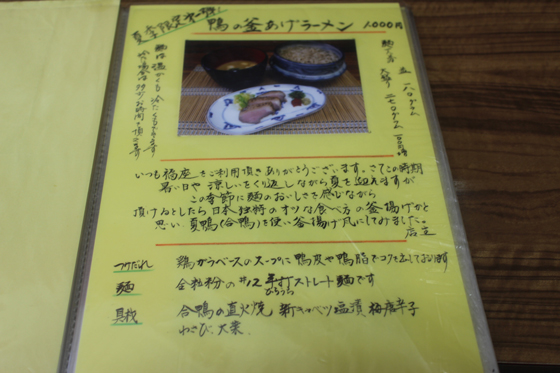 夏季限定 第一弾!
鴨の釜あげラーメン 1,000円
麺は温かくも冷たくもできます
麺の量 並 一八〇グラム
大盛り 二七〇グラム 一〇〇円増
いつも福座をご利用頂きありがとうございます。さてこの時期
暑い日や涼しいをくり返しながら夏を迎えますが
この季節に麺のおいしさを感じながら
頂けるとしたら日本独特のオツな食べ方の釜揚げかと
思い、真鴨(合鴨)を使い釜揚げ風にしてみました。
店主
つけだれ 鶏ガラベースのスープに鴨皮や鴨脂でコクを出しております
麺 全粒粉の#12平打ストレート麺です
ひらうち
具材 合鴨の直火焼 新キャベツ塩漬 梅唐辛子
わさび、大葉